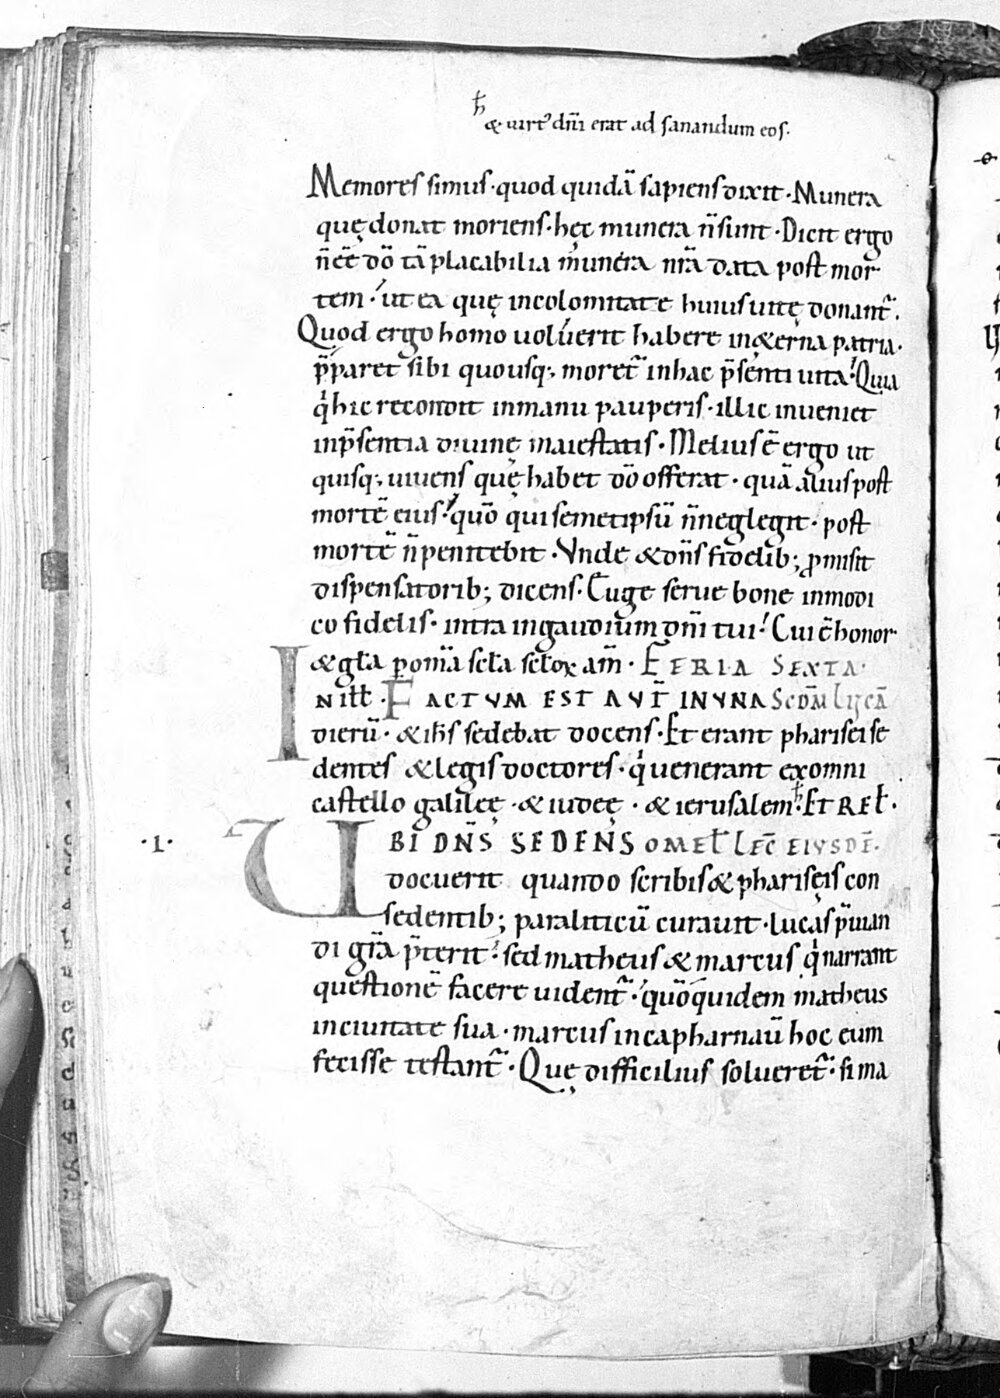 ħ
& uirt' dn̄i erat ad sanandum eos.
Memores simus · quod quidā sapiens dixit · Munera
quę donat moriens · hęc munera n̄ sunt · Dicit ergo
n̄ ēē dō tā placabilia munera nr̄a data post mor
tem · ut ea quę incolomitate huius uitę donant̄.
Quod ergo homo uoluerit habere in &erna patria ·
p̄paret sibi quousq; moret̄ in hac p̄senti uita · Quia
q' hic recondit in manu pauperis · illic inueniet
in p̄sentia diuinę maiestatis · Melius ē ergo ut
quisq; uiuens quę habet dō offerat · quā alius post
mortē eius · quō qui semetipsū n̄ neglegit · post
mortē n̄ penitebit · Vnde & dn̄s fidelib; ꝓmisit
dispensatorib; dicens · Euge serue bone in modi
co fidelis · intra in gaudium dn̄i tui · Cui ē honor
& gła p om̄a scła scłoꝝ am̄ · FERIA SEXTA ·
IN iłł · FACTVM EST AVT̄ IN VNA Scd̄m Lucā
dierū · & ih̄s sedebat docens · Et erant pharisei se
dentes & legis doctores · q' uenerant ex omni
castello galileę · & iudeę · & ierusalem · ħ ET REł ·
· I · UBI DN̄S SEDENS OMEł LEC̄ EIVSDĒ ·
docuerit quando scribis & phariseis con
sedentib; paraliticū curauit · lucas p̄uian
di gr̄a p̄terit · sed matheus & marcus q' narrant
questionē facere uident̄ · quō quidem matheus
in ciuitate sua · marcus in capharnaū hoc eum
fecisse testant̄ · Quę difficilius solueret̄ · si ma